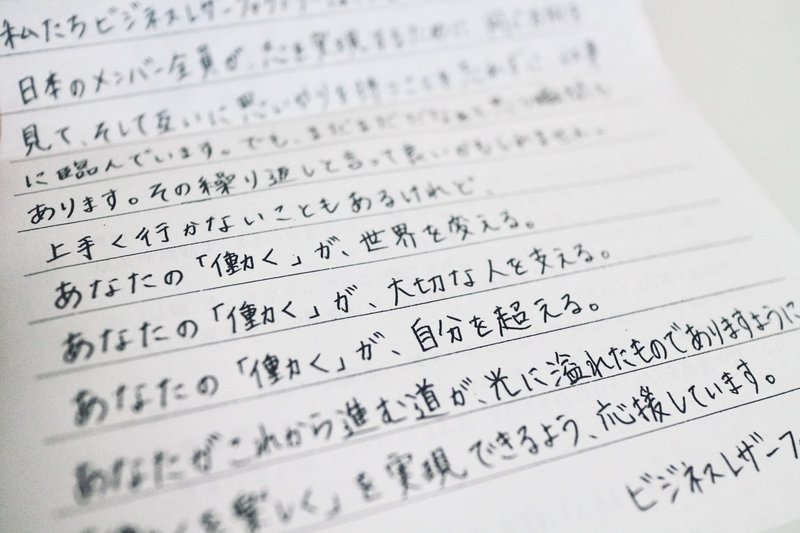 私たちビジネスレザーファクトリー
日本のメンバー全員が、を実現するために 同じ
見て、そして互いに思いやりを持つことを忘れずに 仕事
に臨んでいます。でも、まだまだだなぁと思う瞬間も
あります。その繰り返しと言って良いかもしれません。
上手く行かないこともあるけれど、
あなたの「働く」が、世界を変える。
あなたの「働く」が、大切な人を支える。
あなたの「働く」が、自分を超える。
あなたがこれから進む道が、光に溢れたものでありますように
を楽しく」を実現できるよう、応援しています。
ビジネスレザーフ